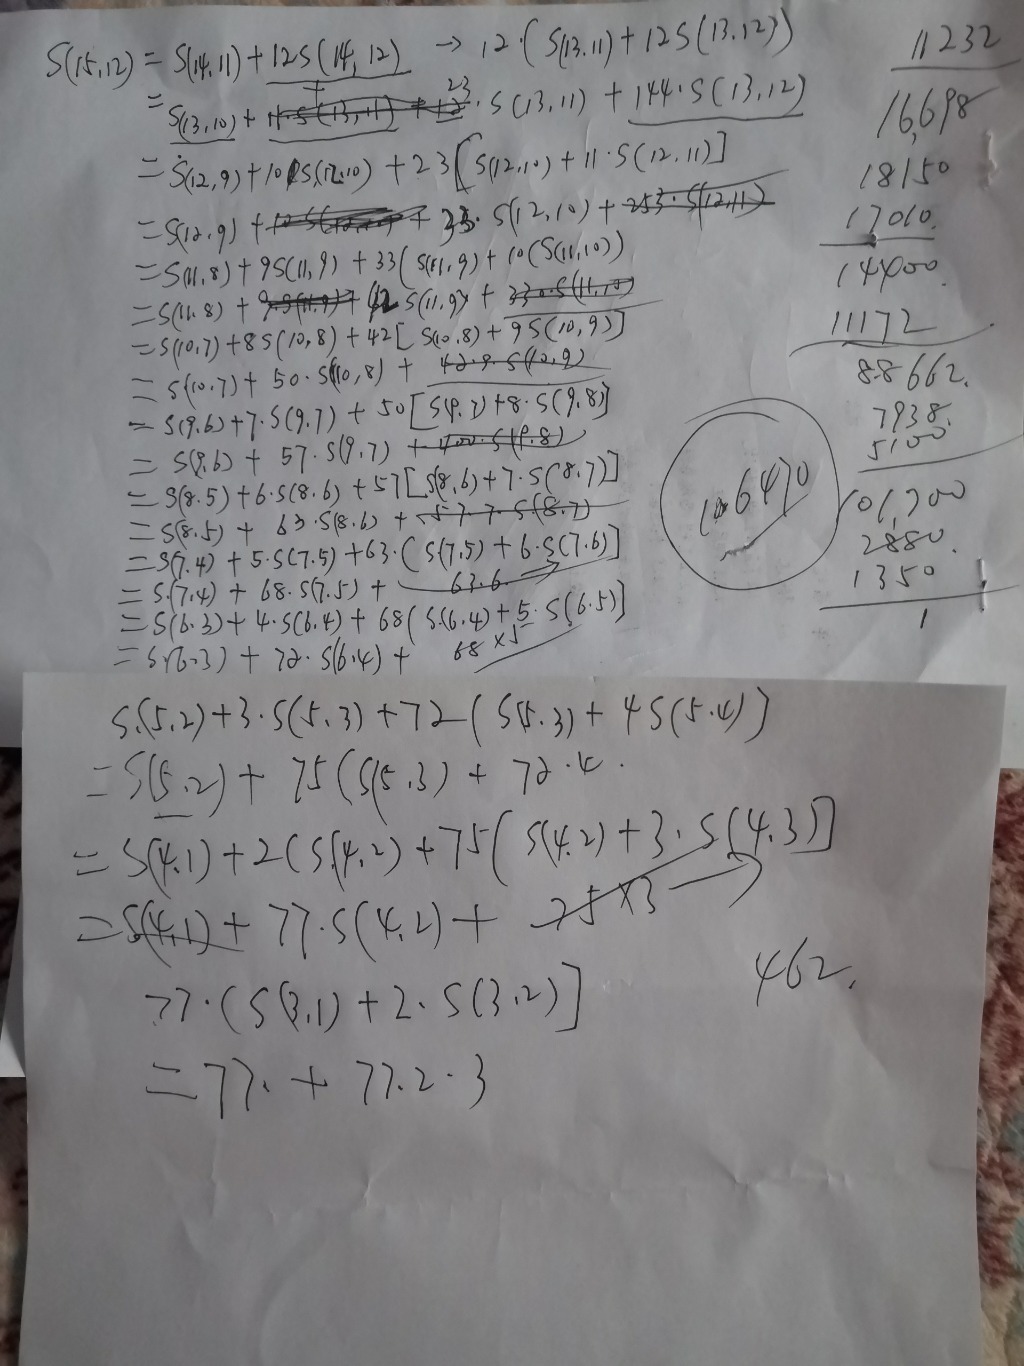 S(15,12) = S(14,11) + 12S(14,12) → 12·(S(13.11) + 12S(13.12))
= S(13,10) + 11·S(13,11) + 12 23 · S(13,11) + 144·S(13,12)
= S(12,9) + 10S(12,10) + 23[S(12,10) + 11·S(12,11)]
= S(12,9) + + 33·S(12,10) + 253·S(12,11)
= S(11,8) + 9S(11,9) + 33(S(11,9) + 10(S(11,10))
= S(11.8) + 9·S(11,9) + 42 S(11,9) + 330·S(11,10)
= S(10,7) + 8S(10,8) + 42[S(10,8) + 9S(10,9)]
= S(10,7) + 50·S(10,8) + 42·9·S(10,9)
= S(9.6) + 7·S(9.7) + 50[S(9,7) + 8·S(9,8)]
= S(9,6) + 57·S(9,7) + 400·S(9.8)
= S(8.5) + 6·S(8.6) + 57[S(8,6) + 7·S(8,7)]
= S(8.5) + 63·S(8.6) + 57·7·S(8.7)
= S(7.4) + 5·S(7.5) + 63·(S(7,5) + 6·S(7.6)]
= S(7,4) + 68·S(7.5) + 63·6
= S(6.3) + 4·S(6.4) + 68(S(6.4) + 5·S(6.5)]
= S(6.3) + 72·S(6.4) + 68×5
11232
16,698
18150
17010.
14400
11172
88662.
7938.
5100
101,700
2880.
1350
1
106470
S(5.2) + 3·S(5.3) + 72(S(5.3) + 4S(5.4)]
= S(5.2) + 75(S(5.3) + 72·4.
= S(4.1) + 2(S(4,2) + 75(S(4.2) + 3·S(4.3)]
= S(4,1) + 77·S(4,2) + 75×3 →
77·(S(3,1) + 2·S(3.2)]
= 77· + 77.2·3
462.